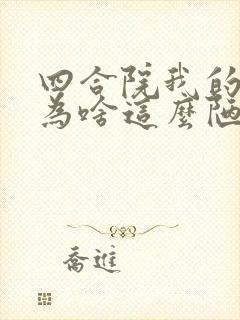 四合院我的
為啥這麼陋
喬進